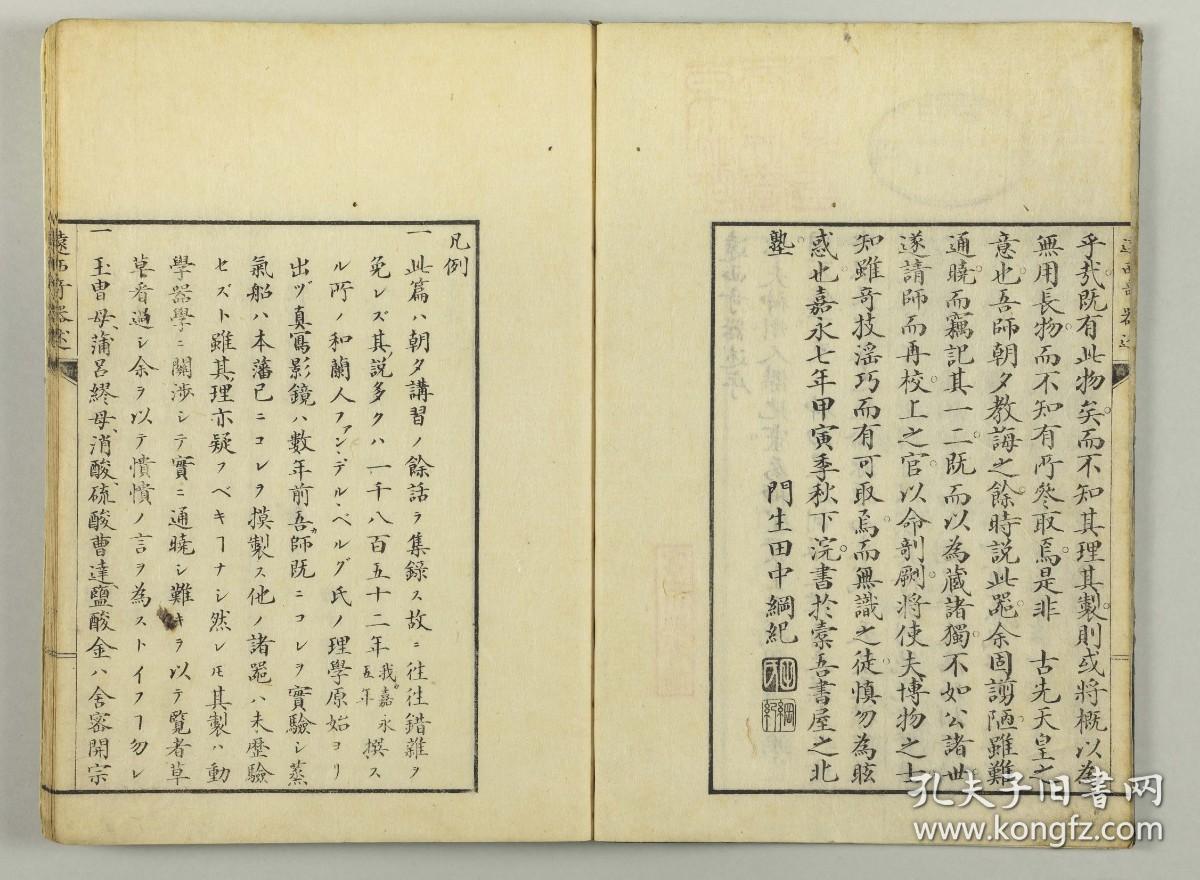 乎哉既有此物矣而不知其理其製則或將概以為
無用長物而不知有所參取焉是非 古先天皇之
意也吾師朝夕教誨之餘時説此器余固謭陋雖難
通曉而竊記其一二既而以為藏諸獨不如公諸世
遂請師而再校上之官以命剞劂將使夫博物之士
知雖奇技淫巧而有可取焉而無識之徒慎勿為眩
惑也嘉永七年甲寅季秋下浣書於素吾書屋之北
塾 門生田中綱紀
凡例
一 此篇ハ朝夕講習ノ餘話ヲ集錄ス故ニ往往錯雜ヲ
免レズ其説多クハ一千八百五十二年我嘉永五年撰ス
ル所ノ和蘭人フアン・デル・ベルグ氏ノ理學原始ヨリ
出ヅ真寫影鏡ハ數年前吾師既ニコレヲ實驗シ蒸
氣船ハ本藩已ニコレヲ摸製ス他ノ諸器ハ未歴驗
セズト雖其理亦疑フベキヿナシ然レ𪜈其製ハ動
學器學ニ關渉シテ實ニ通曉シ難キヲ以テ覽者草
草看過シ余ヲ以テ憒憒ノ言ヲ為ストイフヿ勿レ
一 玉曹母、蒲呂繆母、消酸、硫酸曹達、鹽酸金ハ舍密開宗
遠西奇器述
孔夫子旧书网
www.kongfz.com